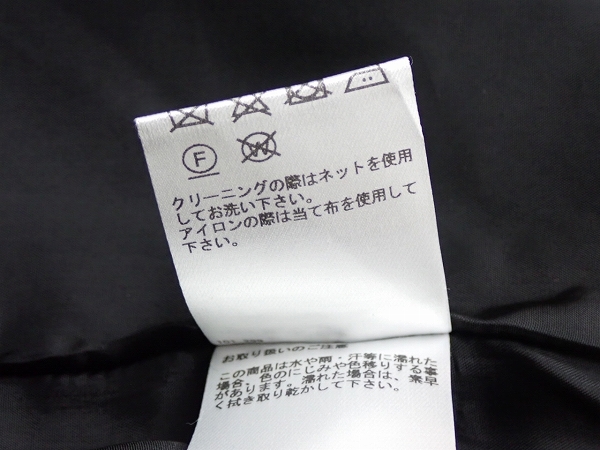 F W
クリーニングの際はネットを使用
してお洗い下さい。
アイロンの際は当て布を使用して
下さい。
お取り扱いのご注意
この商品は水や雨・汗等に濡れた
場合、色のにじみや色移りする事
があります。濡れた場合は、素早
く拭き取り乾かして下さい。